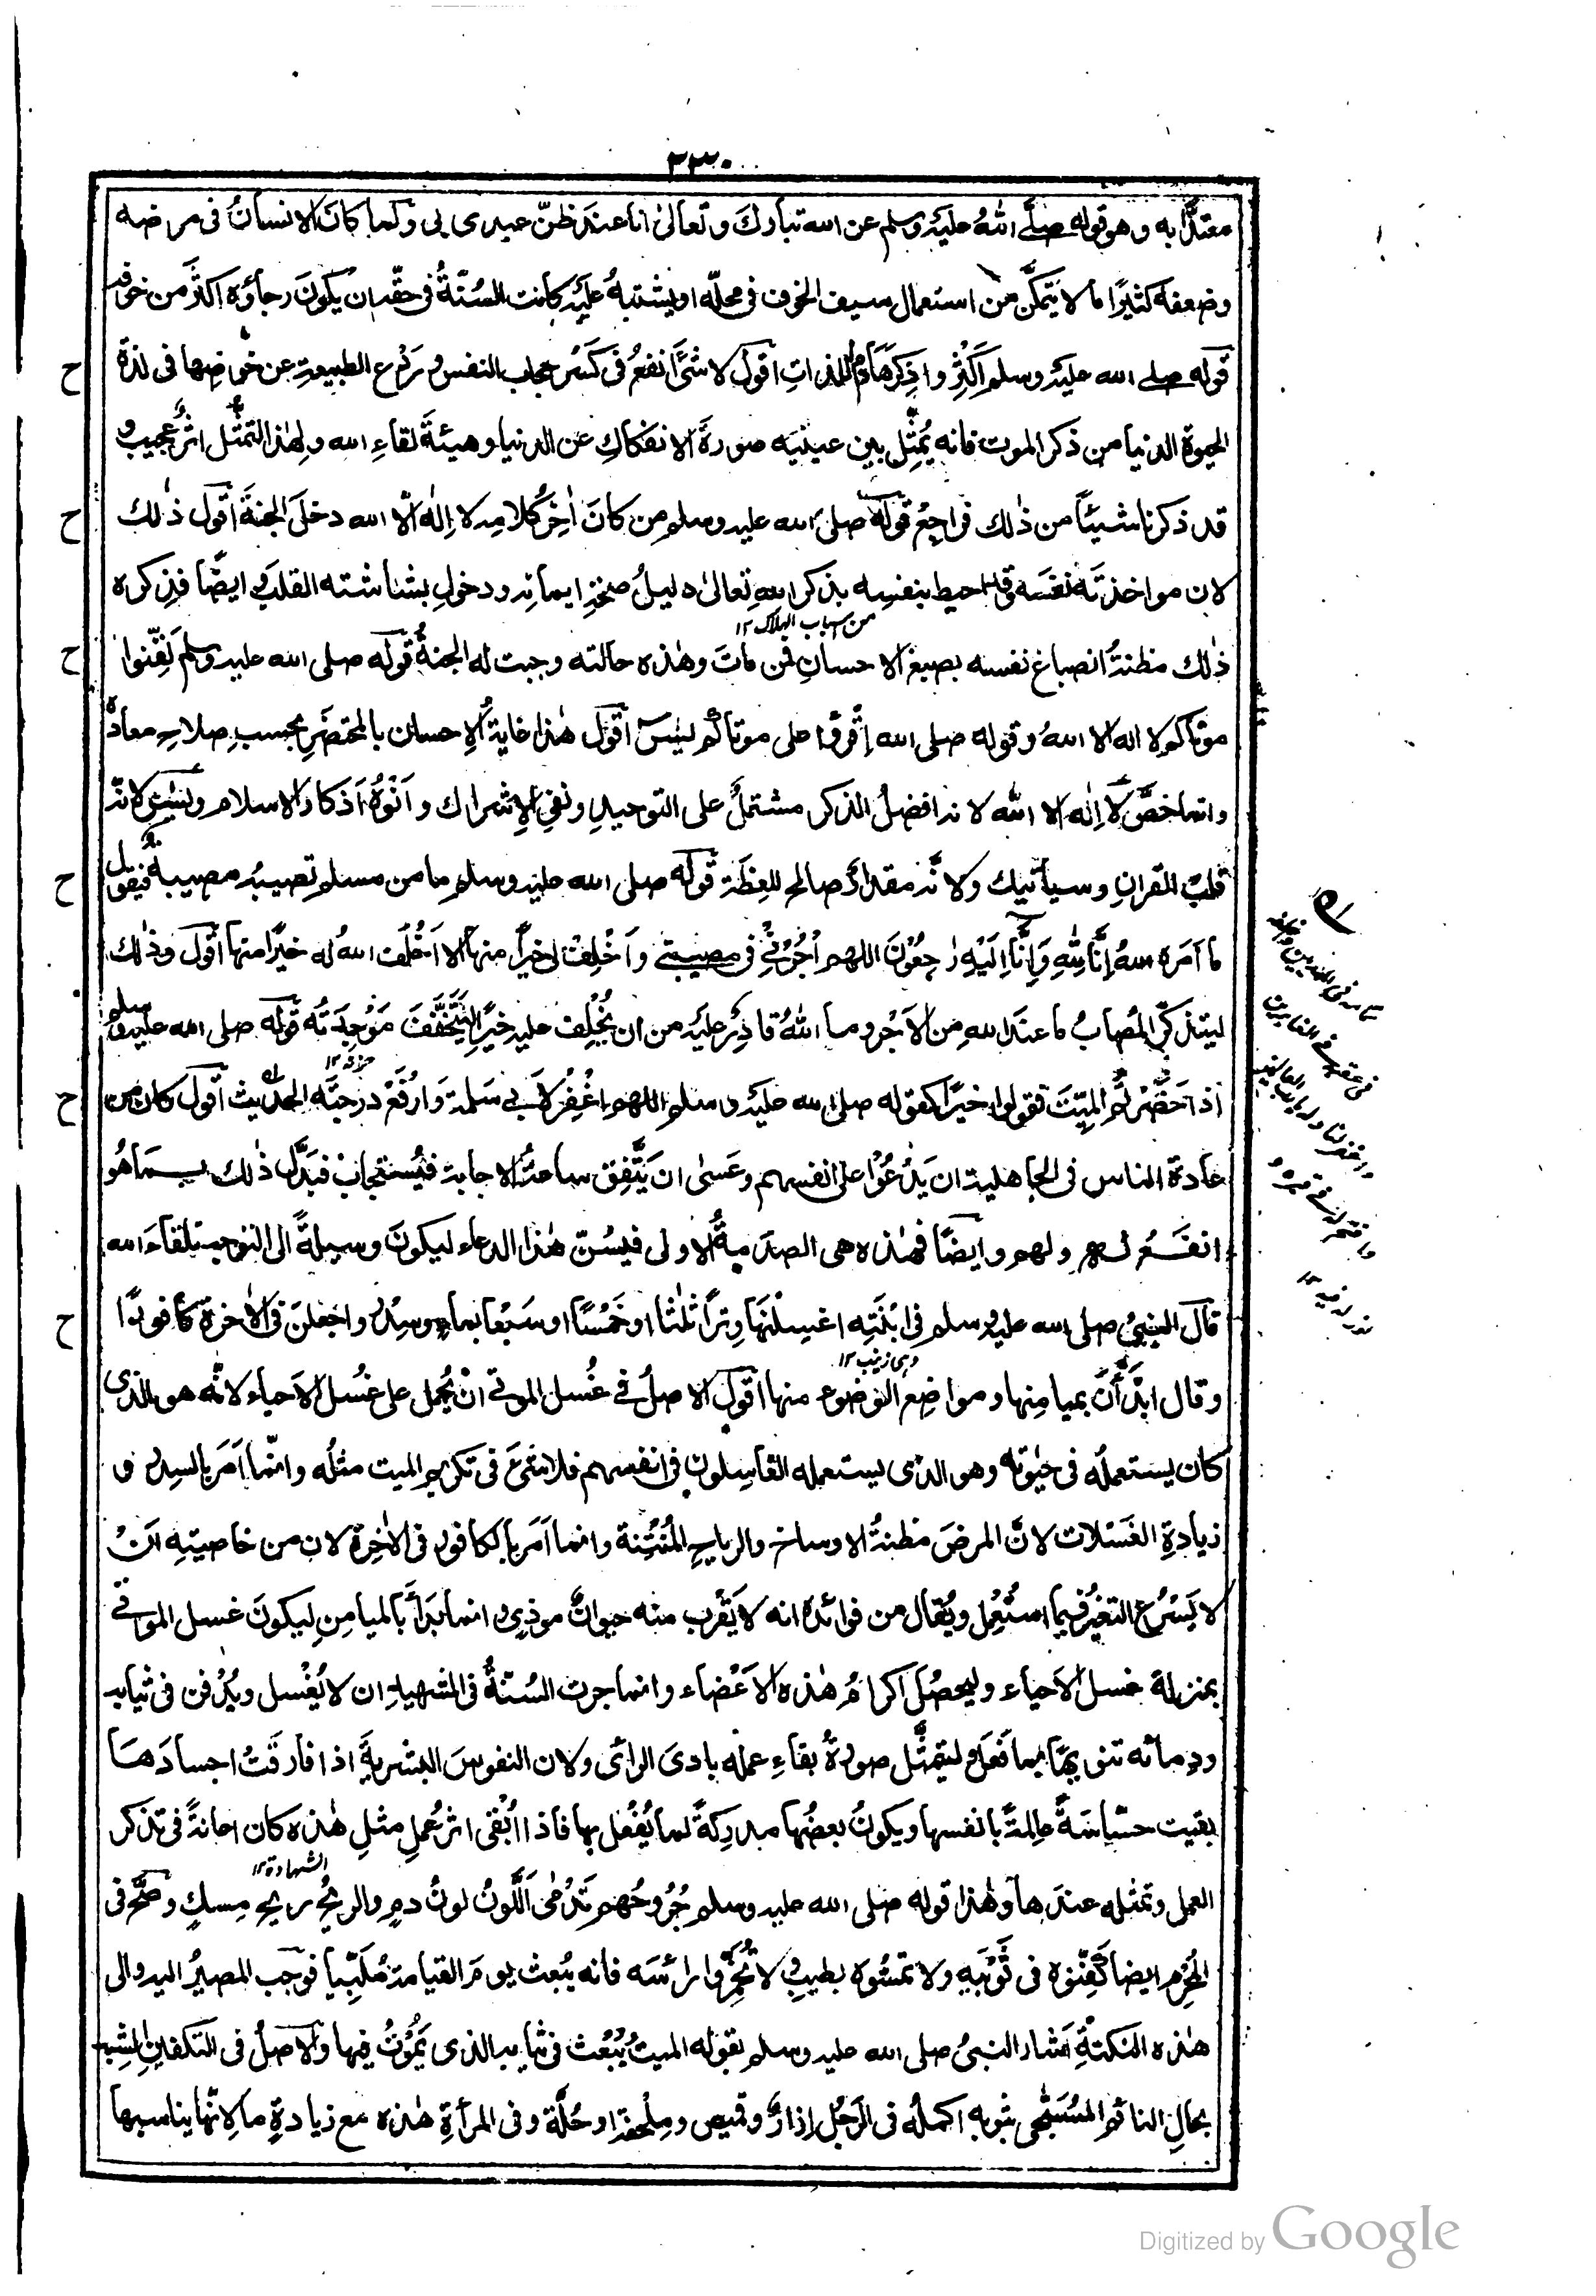 ٢٣٠
معتدًّا به وهو قوله صلّى اللهُ عليَه وسلم عن الله تبارك وتعالىٰ انا عندَ ظنّ عبدى بى وكما كانَ الانسانُ فى مرضه
وضعفه كثيرًا ما لا يتمكَّن من استعمال سيف الخوف فى محلّه او يشتبهُ عليَه كانت السُنّةُ فى حقّه ان يكونَ رجاؤه اكثَر من خوفه
قوله صلى الله عليَه وسلم اَكثِرُوا ذِكرَ هَاذِمِ اللذاتِ اقول لا شئَ انفعُ فى كَسْرِ حجاب النفس ورَدْع الطبيعةِ عن خوضِها فى لذة
الحيوة الدنيا من ذكر الموت فانه يُمثِّل بين عينيَه صورةَ الانفكاكِ عن الدنيا وهيئةَ لقاءِ الله ولِهٰذا التمثّل اثرٌ عجيب و
قد ذكرنا شيئًا من ذٰلك فراجِعْ قوله صلى الله عليه وسلم من كانَ اٰخِرُ كلامه لا اِلٰهَ الّا الله دخلَ الجنةَ اقول ذٰلك
لان مواخذتَه نفسَه وقد احيط بنفسه بذكر اللهِ تعالىٰ دليلُ صحّةِ ايمانه ودخولِ بشاشته القلبَ وايضًا فذِكره
من اسباب الهلاك ١٢
ذٰلك مظنةُ انصباغ نفسه بصبغ الاحسانِ فمن ماتَ وهٰذه حالته وجبت له الجنةُ قوله صلى الله عليه وسلم لَقِّنوا
موتاكم لا اله الا اللهُ وقوله صلى الله اِقْرَؤا على موتاكُم يٰسٓ اقول هٰذا غايةُ الاِحسان بالمحتضَرِ بحسبِ صلاحِ معاده
وانما خصَّ لا اِلٰه الا الله لانه افضلُ الذكر مشتملٌ على التوحيدِ ونفىِ الاِشراك واَنْوَهُ اَذكار الاسلام ويٰسٓ لانّه
قلبُ القرانِ وسيأتيك ولانَّه مقدارٌ صالح للعِظَةِ قوله صلى الله عليَه وسلم ما من مسلم تصيبُه مصيبةٌ فيقول
ما اَمَره اللهُ اِنَّا لِلّٰهِ وَاِنَّا اِلَيْهِ رٰجِعُوْنَ اللهم اْجُرْنِىْ فى مصيبتى وَاَخْلِفْ لى خيرًا منها الا اَخْلَفَ اللهُ له خيرًا منها اقول وذٰلك
ليتذكّر المُصابُ ما عندَ اللهِ من الاَجْر وما اللهُ قادِرٌ عليَه من ان يُخْلِف عليه خيرًا لتَتَخفَّفَ مَوْجِدَتُه قوله صلى الله عليه وسلم
حزنه ١٢
اذا حَضَرْتُم الميّتَ فقولوا خيرًا كقوله صلى الله عليَه وسلم اللهم اغْفِرْ لاَبى سَلمة وَارْفَعْ درجتَه الحديث اقول كان من
عادة الناس فى الجاهلية ان يَدْعُوْا على انفسهم وعَسٰى ان يَتَّفِق ساعةُ الاجابة فيُستجابُ فبَدَّل ذٰلك بما هُو
انفَعُ له ولهم وايضًا فهٰذه هى الصدمةُ الاولى فيسُنّ هٰذا الدعاء ليكونَ وسيلةً الى التوجه تلقاءَ الله
قال النبىُ صلى الله عليه وسلم فى ابْنَتِه اغسِلْنَها وِترًا ثلٰثًا او خَمْسًا او سَبْعًا بماءٍ وسِدرٍ واجعلنَ فى الاٰخرة كافورًا
وهى زينب ١٢
وقال ابدَأْنَ بميامِنها ومواضِعِ الوُضوء منها اقول الاصلُ فى غُسل الموتى انْ يُحمل على غُسل الاَحياء لانّه هو الذى
كان يستعملُه فى حيٰوته وهو الذى يستعمله الغاسِلون فى انفسهم فلا شئَ فى تكريم الميت مثلُه وانّما اَمَر بالسِدر و
زيادةِ الغَسَلات لانَّ المرضَ مظنةُ الاوساخ والرياحِ المُنْتِنة وانما اَمَر بالكافور فى الاٰخِرة لان من خاصيتِه اَنْ
لا يَسْرُع التغيُّرُ فيما استُعْمِل ويُقال من فوائده انه لا يَقْرب منه حيوانٌ موذٍى وانما بَدَأَ بالميامِنِ ليكونَ غسل الموتى
بمنزلة غسل الاَحياء وليحصُلَ اكرامُ هٰذه الاَعْضاء وانما جرت السُنّةُ فى الشهيدِ ان لا يُغْسل ويُدْفن فى ثيابه
ودمائه تنويهًا بما فَعَلَ وليتمثَّل صورةُ بقاءِ عملِه بادىَ الرأى ولان النفوسَ البشريةَ اذا فارقَتْ اجسادَها
بقيت حسّاسَةً عالِمةً بانفسها ويكونُ بعضُها مدرِكةً لما يُفْعَل بها فاذا اُبْقى اثرُ عملٍ مثلِ هٰذه كان اعانةً فى تذكر
الشهادة ١٢
العمل وتمثله عندَها وهٰذا قوله صلى الله عليه وسلم جُرُوحُهم تَدْمٰى اَللَّونُ لونُ دمٍ والريحُ ريح مِسكٍ وصَحَّ فى
المُحْرِم ايضا كَفِّنُوه فى ثَوْبَيه ولا تمسُّوه بطِيبٍ ولا تُخَمِّرُوا رأسَه فانه يُبعث يومَ القيامة مُلَبِّيا فوجب المصيرُ اليه والى
هٰذه النكتةِ اَشار النبىُ صلى الله عليه وسلم بقوله الميتُ يُبْعَث فى ثيابه الذى يَمُوْتُ فيها والاصلُ فى التكفينِ الشِبه
بحالِ النائم المُسَجّٰى بثوبه اكملُه فى الرَجُل اِزارٌ وقميص ومِلْحفة او حُلّة وفى المرأةِ هٰذه مع زيادةٍ ما لِانّها يناسبها
ح
ح
ح
ح
ح
ح
Digitized by Google